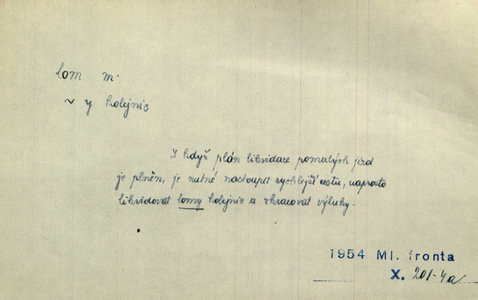 lom m.
~ y kolejnic
I když plán likvidace pomalých jízd
je plněn, je nutné nastoupit rychlejší cestu, naprosto
likvidovat lomy kolejnic a zkracovat výluky.
1954 Ml. fronta
X. 201-4a